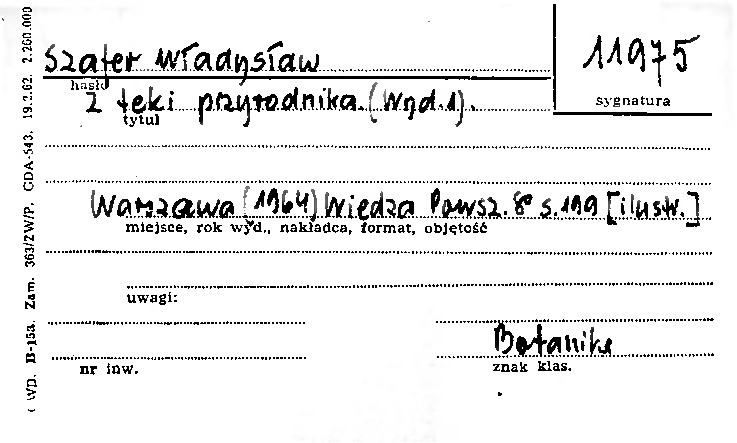 Szafer Władysław
11975
hasło
sygnatura
Z teki przyrodnika. (Wyd. 1).
tytuł
Warszawa (1964) Wiedza Powsz. 8° s. 199 [ilustr.]
miejsce, rok wyd., nakładca, format, objętość
uwagi:
Botanika
nr inw.
znak klas.
WD. B-15a. Zam. 363/ZW/P. GDA-543. 19.2.62. 2.260.000